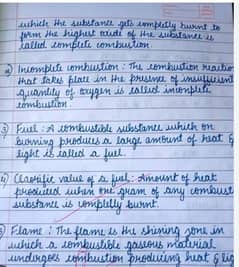 which the substance gets completly burnt to
form the highest oxide of the substance is
called complete combustion.
2) Incomplete combustion : The combustion reaction
that takes place in the presence of insufficient
quantity of oxygen is called incomplete
combustion.
3) Fuel : A combustible substance which on
burning produces a large amount of heat &
light is called a fuel.
4) Clarific value of a fuel : Amount of heat
produced when one gram of any combust
substance is completly burnt.
5) Flame : The flame is the shining zone in
which a combustible gaseous material
undergoes combustion producing heat & lig